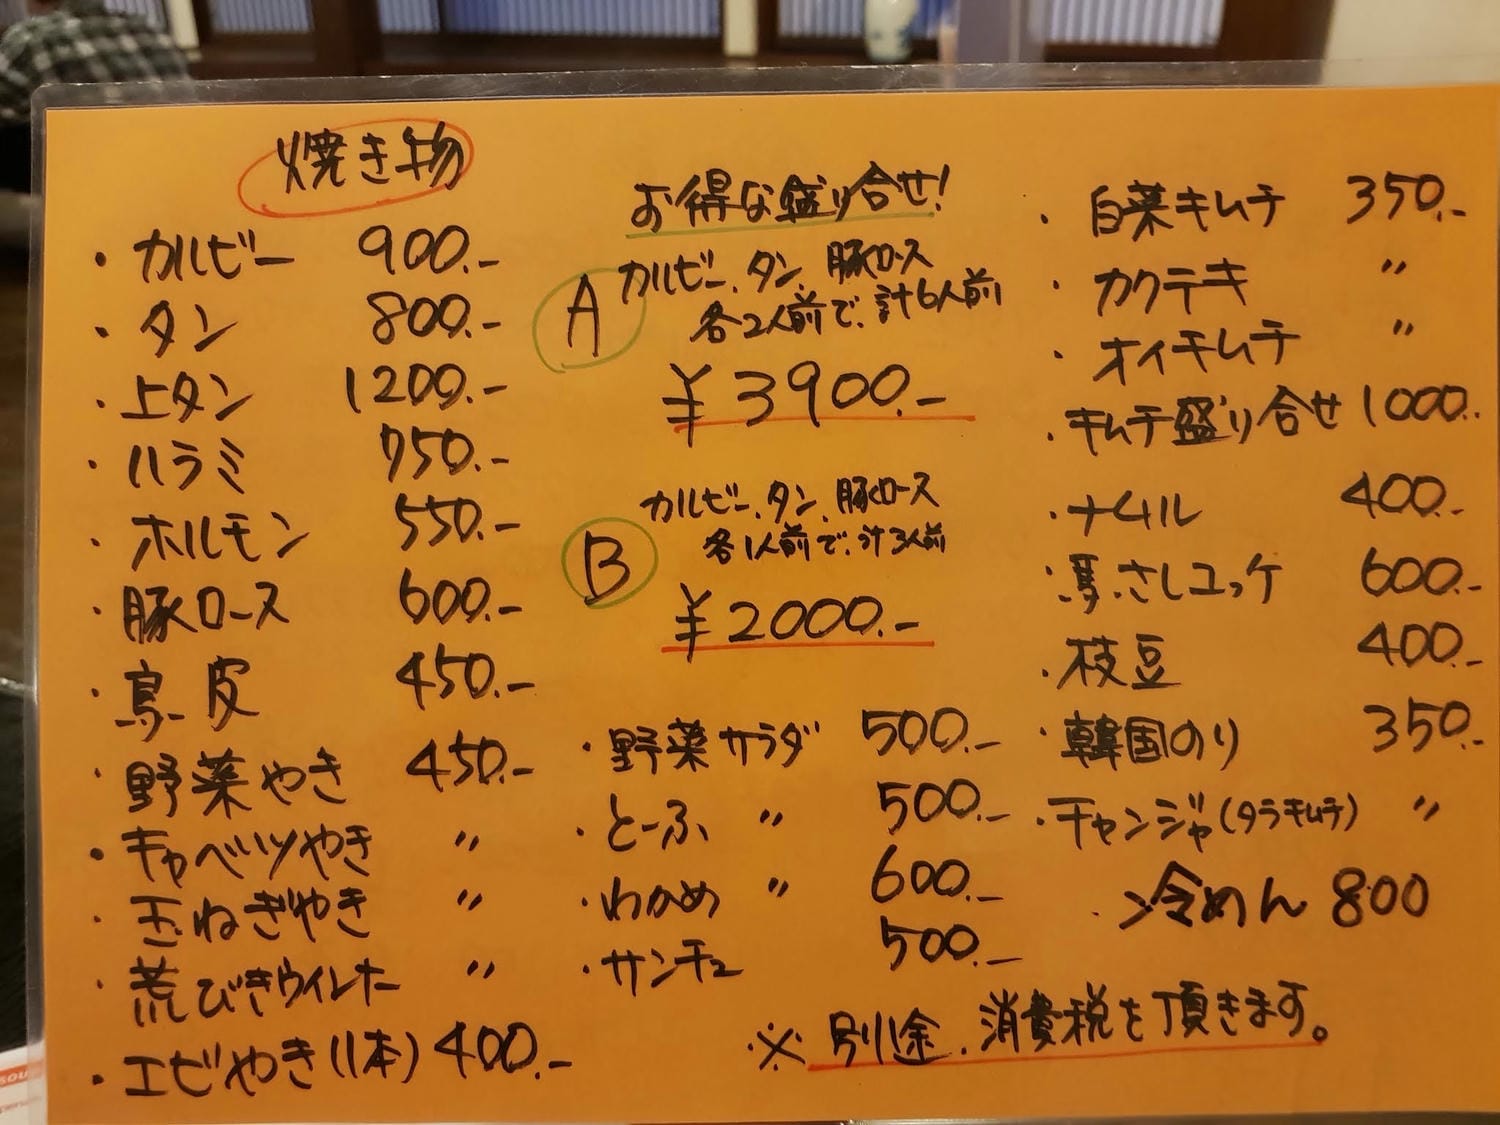 焼き物
・カルビー 900.-
・タン 800.-
・上タン 1200.-
・ハラミ 750.-
・ホルモン 550.-
・豚ロース 600.-
・鳥皮 450.-
・野菜やき 450.-
・キャベツやき 〃
・玉ねぎやき 〃
・荒びきウインナー 〃
・エビやき(1本) 400.-
お得な盛り合せ!
A
カルビー、タン、豚ロース
各2人前で、計6人前
¥3900.-
B
カルビー、タン、豚ロース
各1人前で、計3人前
¥2000.-
・野菜サラダ 500.-
・とーふ 〃 500.-
・わかめ 〃 600.-
・サンチュ 500.-
・白菜キムチ 350.-
・カクテキ 〃
・オイキムチ 〃
・キムチ盛り合せ 1000.-
・ナムル 400.-
・馬さしユッケ 600.-
・枝豆 400.-
・韓国のり 350.-
・チャンジャ(タラキムチ) 〃
・冷めん 800
※別途、消費税を頂きます。